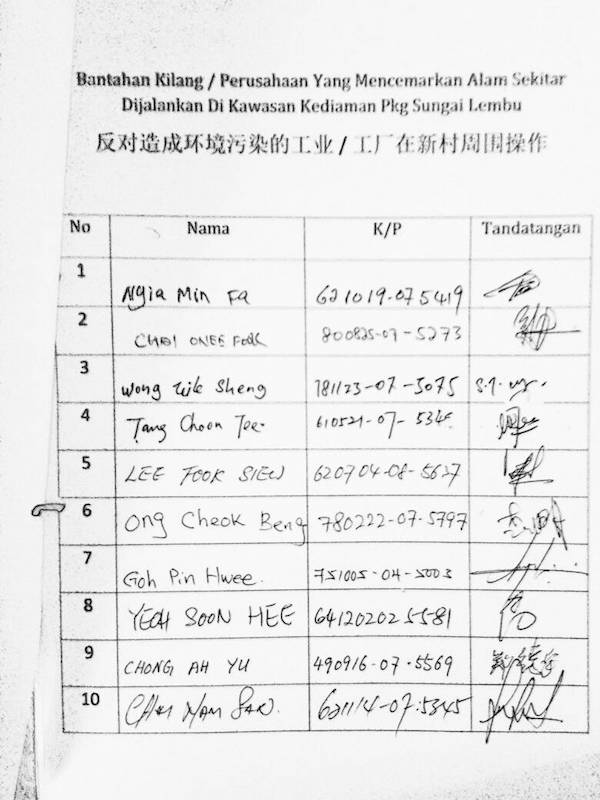 Bantahan Kilang / Perusahaan Yang Mencemarkan Alam Sekitar
Dijalankan Di Kawasan Kediaman Pkg Sungai Lembu
反对造成环境污染的工业 / 工厂在新村周围操作
No Nama K/P Tandatangan
1 Ngia Min Fa 621019-07 5419
2 800825-07-5273
3 Wong Sheng 781123-07-5075
4 Tang Choon Tee 610521-07-
5 LEE FOOK SIEW 620704-08-5627
6 Ong Cheok Beng 780222-07-5797
7 Goh Pin Hwee. 751005-04-5003
8 YEOH SOON HEE 641202025581
9 CHONG AH YU 490916-07-5569
10 621114-07-5345